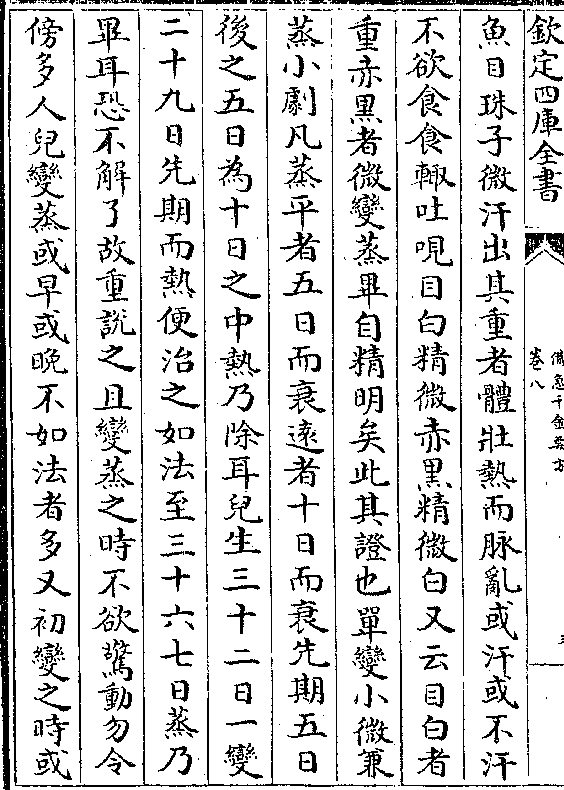 欽定四庫全書
備急千金要方
卷八
魚目珠子微汗出其重者體壯熱而脉亂或汗或不汗
不欲食食輙吐哯目白精微赤黑精微白又云目白者
重赤黑者微變蒸畢自精明矣此其證也單變小微兼
蒸小劇凡蒸平者五日而衰逺者十日而衰先期五日
後之五日為十日之中熱乃除耳兒生三十二日一變
二十九日先期而熱便治之如法至三十六七日蒸乃
畢耳恐不解了故重説之且變蒸之時不欲驚動勿令
傍多人兒變蒸或早或晚不如法者多又初變之時或